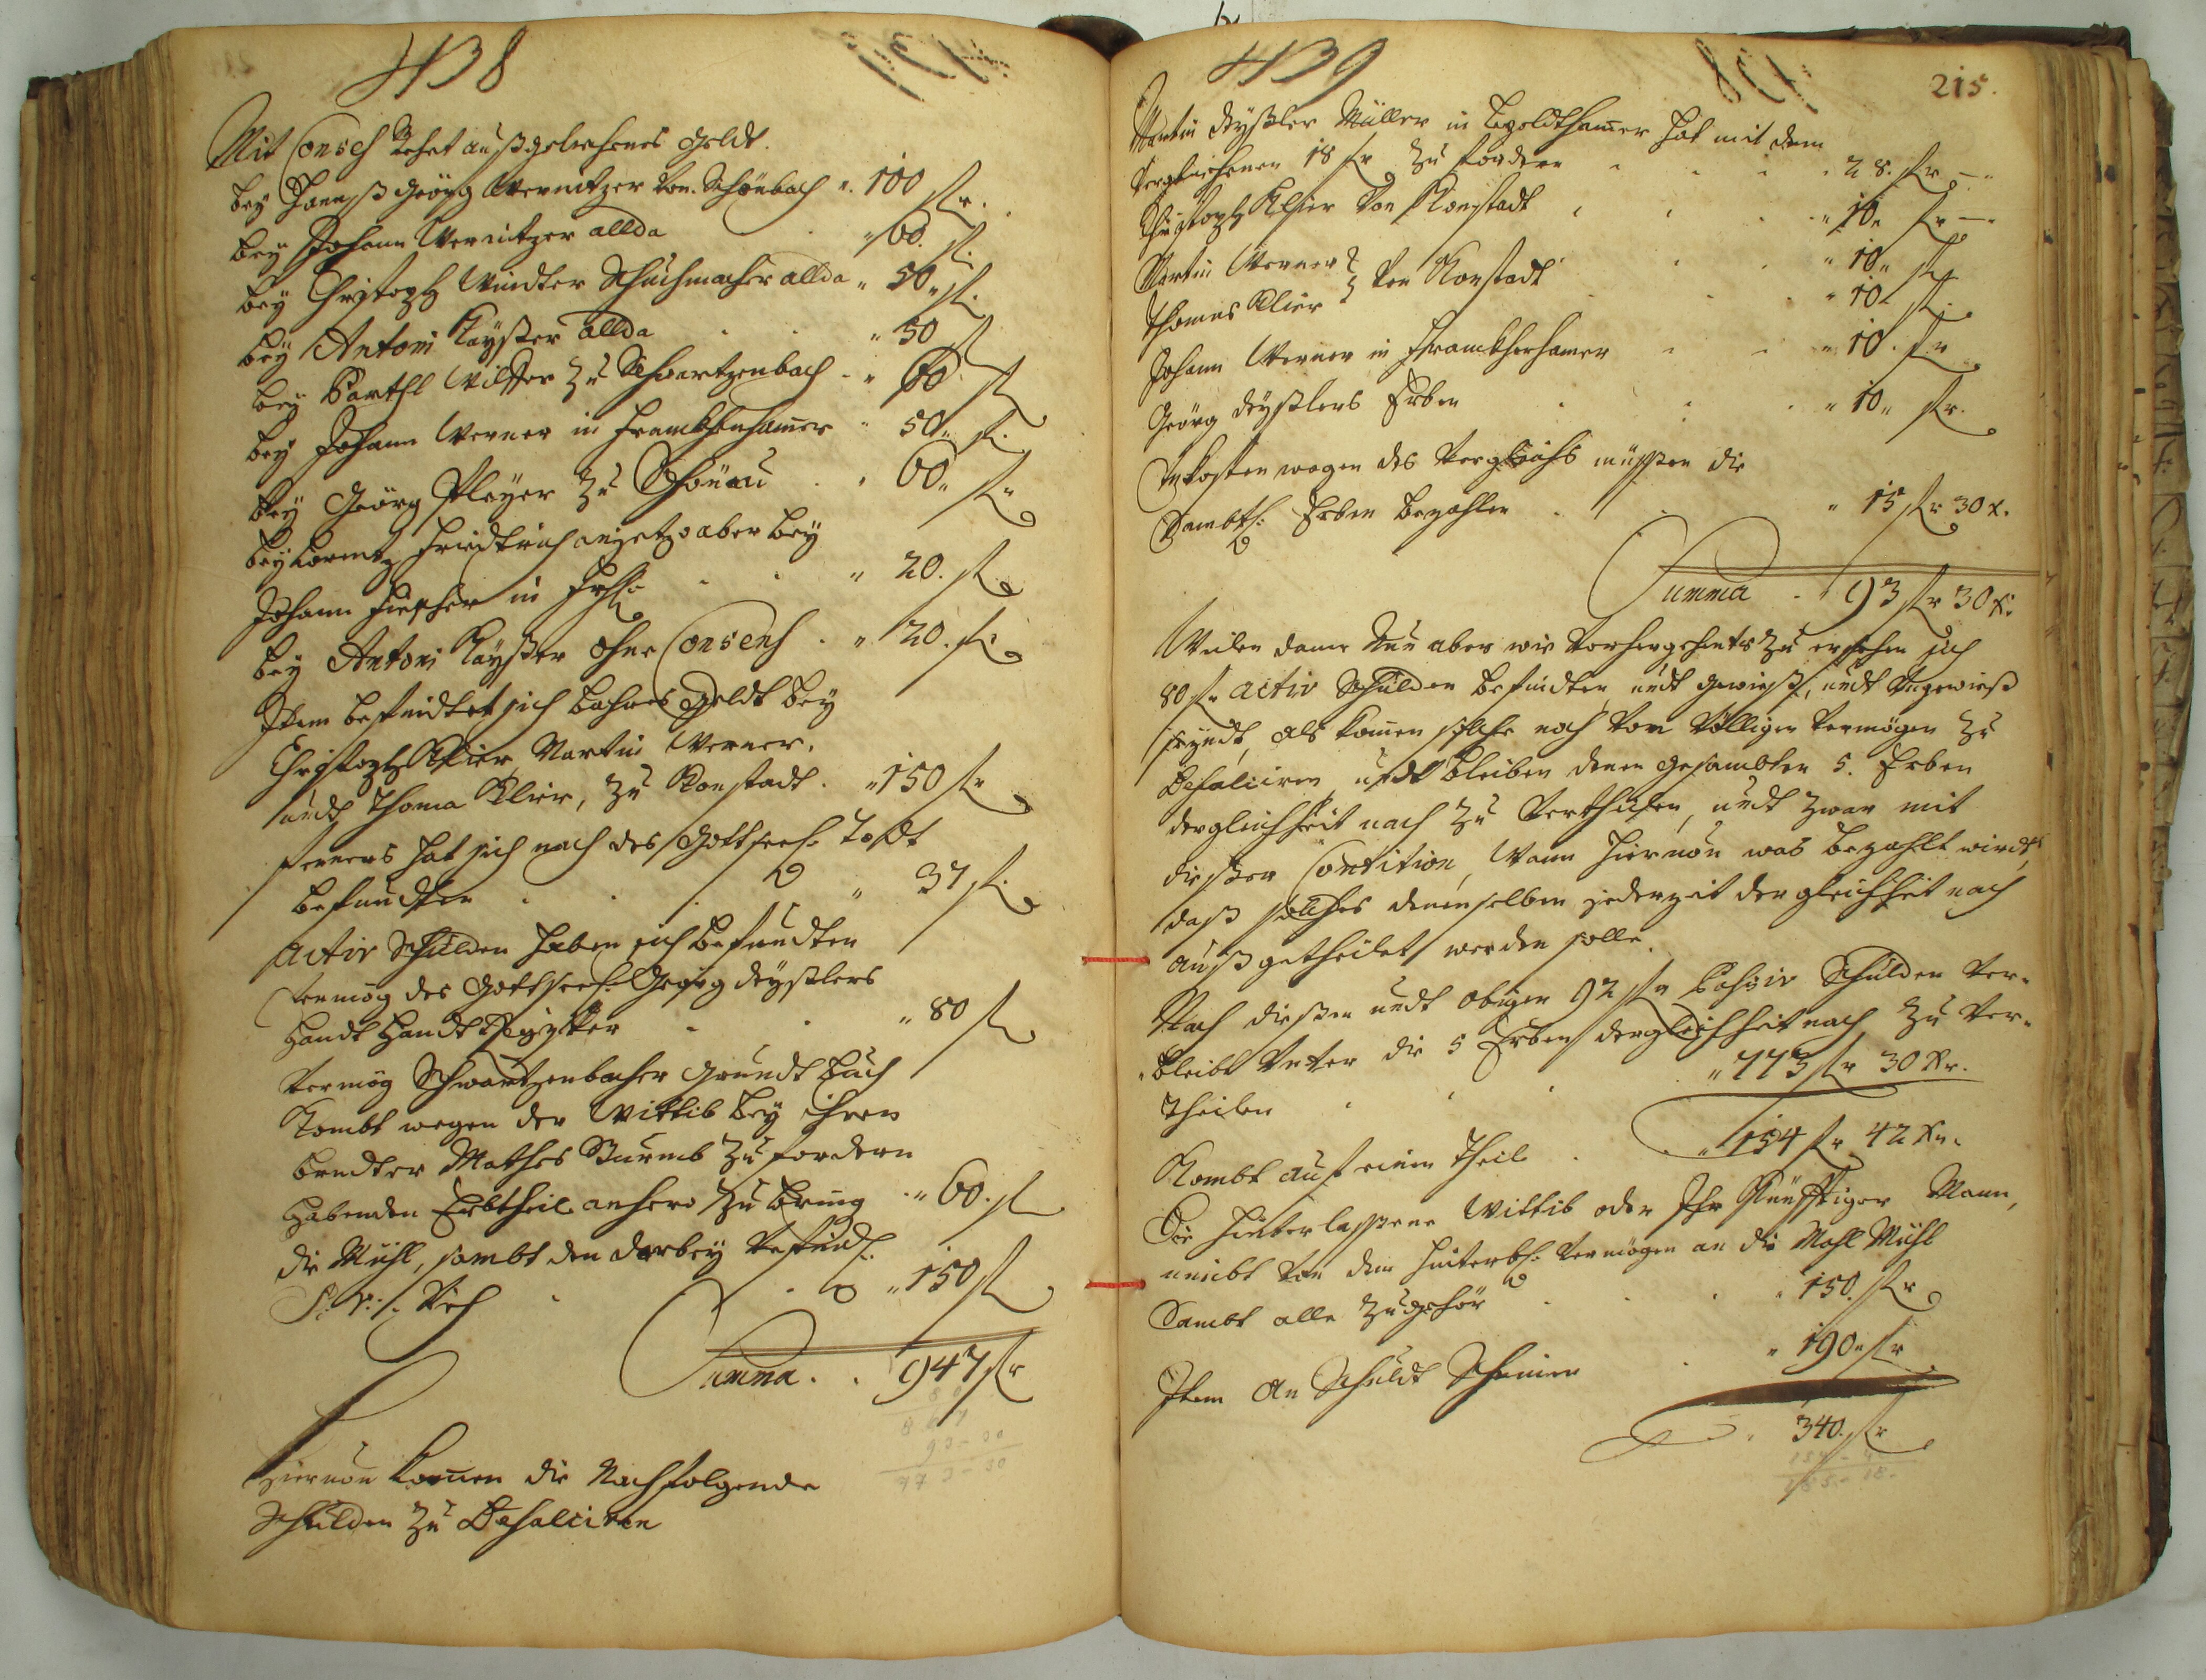 438
Mit Consens Rehet außgeliehenes Geldt.
bey Hannß Geörg Wernitzer von Schönbach „ 100 fl.
bey Johann Wernitzer allda „ 60. fl.
bey Christoph Windter Schuhmacher allda „ 50 „ fl.
bey Antoni Kayßer allda „ 50 fl
bey Barthl zu Schwartzenbach „ 60 fl
bey Johann Werner in Franckhenhamer „ 50 „ fl.
bey Geörg Pleyer zu Schönau „ 60 „ fl
bey Lorentz Friedrich anjetzo aber bey
Johann Fischer in „ 20. fl
bey Antoni Kayßer ohne Consens „ 20. fl.
Item befindtet sich bahres Geldt bey
Christoph Klier, Martin Werner,
undt Thoma Klier, zu Konstadt „ 150 fl
ferners hat sich nach des Gottseel. Todt
befundten „ 37 fl.
Activ Schulden haben sich befundten
vermög des Gottseel. Geörg Deyßlers
handt „ 80 fl
Vermög Schwartzenbacher Grundt Buch
kombt wegen der Wittib bey ihren
bruder Mathes Sturmb zu fordern
habenden Erbtheil anhero zu bring „ 60. fl
die Mühl, sambt den darbey befindl.
S: V: Vieh „ 150 fl
Summa „ 947 fl
Hiervon komen die Nachfolgende
Schulden zu Defalciren
439
215.
Martin Deyßler Müller in Leopoldthamer hat mit dem
verglichenen 18 fl zu fordern „ 28. fl
Christoph Klier von Konstadt „ 10 „ fl
Martin Werner „ 10 „ fl
Thomas Klier von Konstadt „ 10 fl.
Johann Werner in Franckhenhamer „ 10. fl
Geörg Deyßlers Erben „ 10 „ fl.
Unkosten wegen des Vergleichs müßen die
Sambtl. Erben bezahlen „ 15 fl 30 x.
Summa „ 93 fl 30 x.
Weilen dann nun aber wie vorhergehents zu ersehen sich
80 fl activ Schulden befindten, undt gewieß, undt ungewieß
seyndt, als komen solche noch von völligen vermögen zu
Defalciren, undt bleiben denen gesambten 5. Erben
der gleichheit nach zu vertheilen, undt zwar mit
dießer Contition, Wann hiervon was bezahlt wirdt,
daß solches denenselben jederzeit der gleichheit nach
außgetheilet werden solle.
Nach dießen undt obigen 92 fl Passiv Schulden ver-
bleibt unter die 5 Erben der gleichheit nach zu ver-
theilen „ 773 fl 30 kr.
Kombt auf einen Theil „ 154 fl 42 kr.
Die hinterlaßene Wittib oder Ihr künfftiger Mann,
nimbt von dem hinterl. vermögen an die Mahl Mühl
sambt alle Zugehör „ 150. fl
Item An Schuldt Scheinen „ 190 „ fl
340. fl